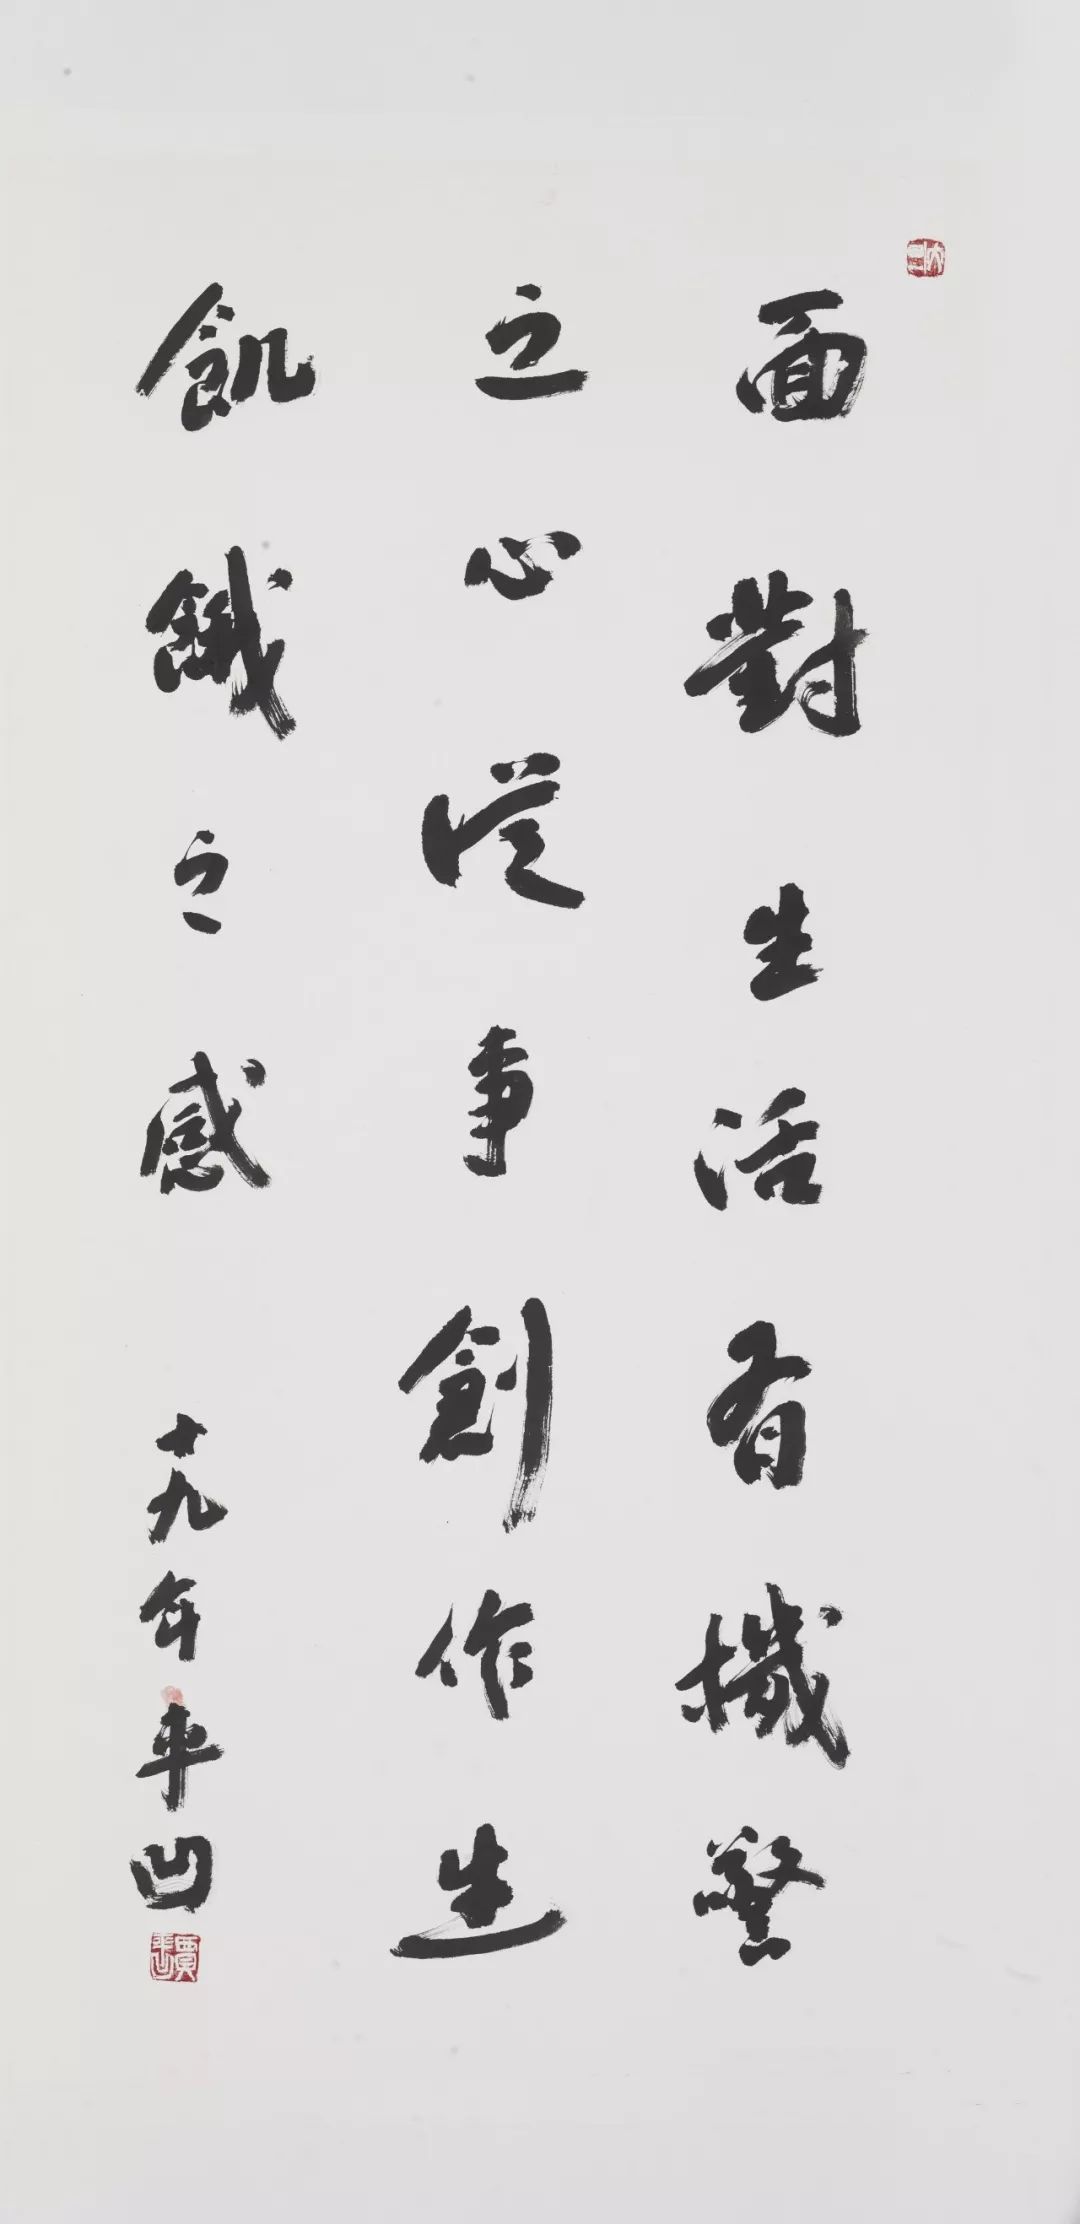 面對生活有機警
之心從事創作生
飢餓之感 十九年平凹
賈平凹